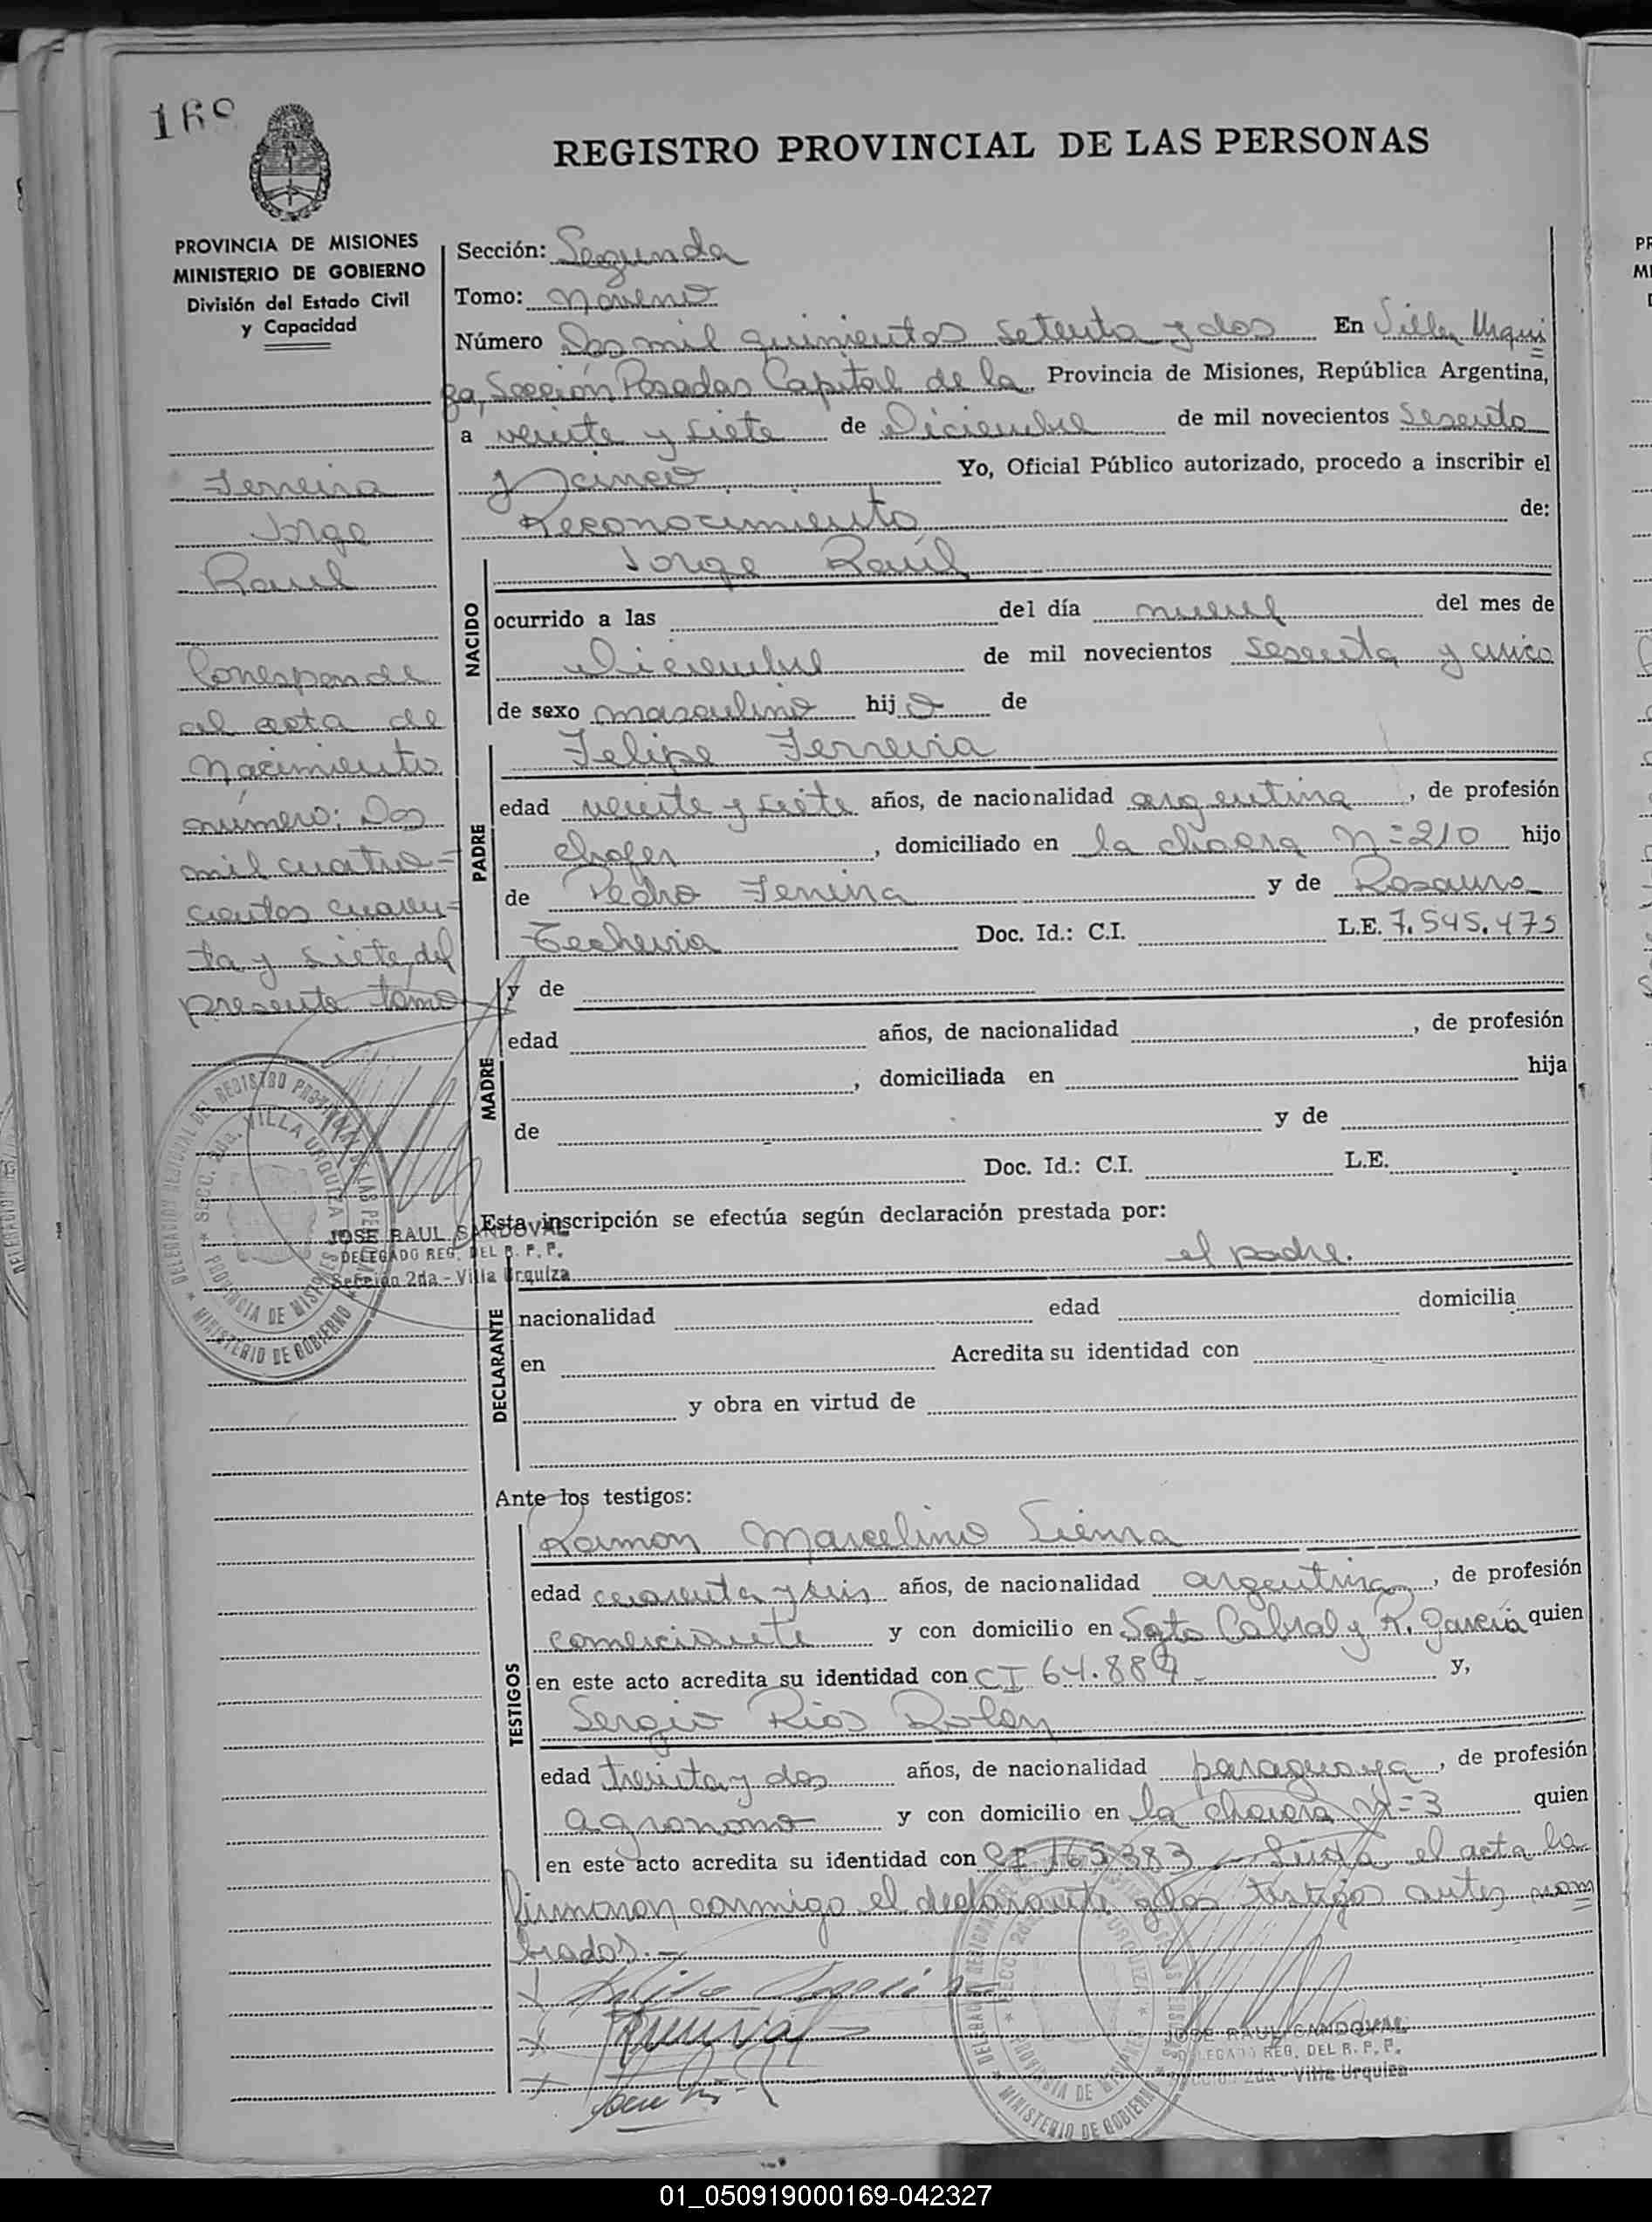 169
REGISTRO PROVINCIAL DE LAS PERSONAS
PROVINCIA DE MISIONES
MINISTERIO DE GOBIERNO
División del Estado Civil
y Capacidad
Ferreira
Jorge
Raul
Corresponde
al acta de
Nacimiento
número: Dos
mil cuatro=
cientos cuaren=
ta y siete del
presente tomo
Sección: Segunda
Tomo: Noveno
Número Dos mil quinientos setenta y dos En Villa Urqui
za, Sección Posadas Capital de la Provincia de Misiones, República Argentina,
a veinte y siete de Diciembre de mil novecientos Sesenta
y cinco Yo, Oficial Público autorizado, procedo a inscribir el
Reconocimiento de:
NACIDO
Jorge Raúl
ocurrido a las del día nueve del mes de
Diciembre de mil novecientos sesenta y cinco
de sexo masculino hijo de
PADRE
Felipe Ferreira
edad veinte y siete años, de nacionalidad argentina, de profesión
chofer, domiciliado en la chacra N=210 hijo
de Pedro Ferreira y de Rosaura
Doc. Id.: C.I. L.E. 7.545.475
MADRE
y de
edad años, de nacionalidad , de profesión
, domiciliada en hija
de y de
Doc. Id.: C.I. L.E.
Esta inscripción se efectúa según declaración prestada por:
el padre.
DECLARANTE
nacionalidad edad domicilia
en Acredita su identidad con
y obra en virtud de
DELEGACION REGIONAL DEL REGISTRO PROVINCIAL DE LAS PERSONAS
SECC. 2da. VILLA URQUIZA
PROVINCIA DE MISIONES
MINISTERIO DE GOBIERNO
JOSE RAUL SANDOVAL
DELEGADO REG. DEL R. P. P.
Sección 2da - Villa Urquiza
Ante los testigos:
TESTIGOS
Ramon Marcelino Sierra
edad cuarenta y seis años, de nacionalidad argentina, de profesión
comerciante y con domicilio en Sgto Cabral y R. García quien
en este acto acredita su identidad con CI 64.889 y,
Sergio Rios Rolon
edad treinta y dos años, de nacionalidad paraguaya, de profesión
agronomo y con domicilio en la chacra N=3 quien
en este acto acredita su identidad con CI 165383.- Leida el acta la
firmaron conmigo el declarante y los testigos antes nom
brados.-
JOSE RAUL SANDOVAL
DELEGADO REG. DEL R. P. P.
Sección 2da - Villa Urquiza
01_050919000169-042327